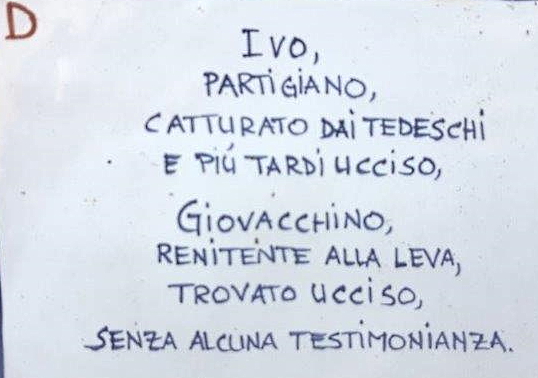 D
IVO,
PARTIGIANO,
CATTURATO DAI TEDESCHI
E PIÚ TARDI UCCISO,
GIOVACCHINO,
RENITENTE ALLA LEVA,
TROVATO UCCISO,
SENZA ALCUNA TESTIMONIANZA.